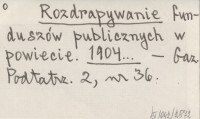 Rozdrapywanie fun-
duszów publicznych w
powiecie. 1904... — Gaz.
Podtatrz. 2, nr 36.